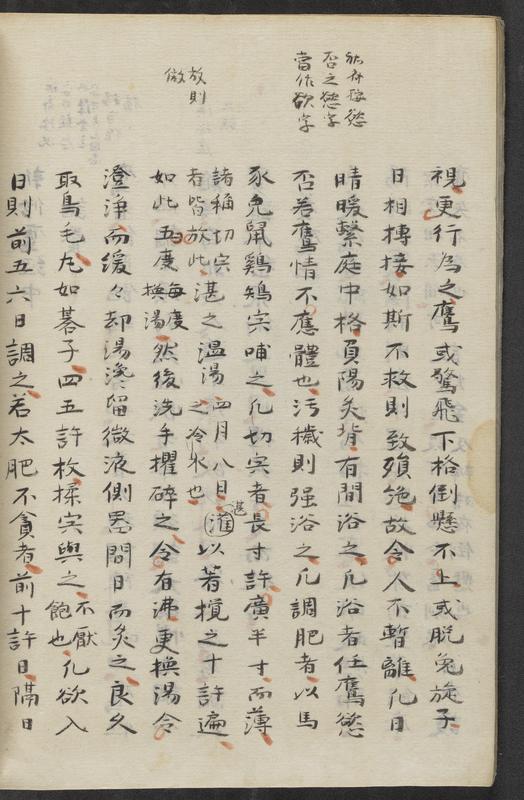 能府按慾
否之慾字
當作欲字
放則
倣
視更行為之鷹或驚飛下格倒懸不上或脱兔旋子
日相摶接如斯不救則致殞斃故令人不暫離凡日
晴暖繫庭中格員陽炙背有間浴之凡浴者任鷹慾
否若鷹情不應體也汚穢則强浴之凡調肥者以馬
豕兔鼠鷄鳩宍哺之凡切宍者長寸許廣半寸而薄
諸稱切宍
者皆放此
湛之温湯四月八日
之冷水也
湛
漼以箸攪之十許遍
如此五度
每度
換湯
然後洗手擢碎之令有沸更換湯令
澄淨而緩々却湯瀺留微液側置間日而炙之良久
取鳥毛丸如碁子四五許枚揉宍與之
不厭
飽也
凡欲入
日則前五六日調之若太肥不貪者前十許日隔日